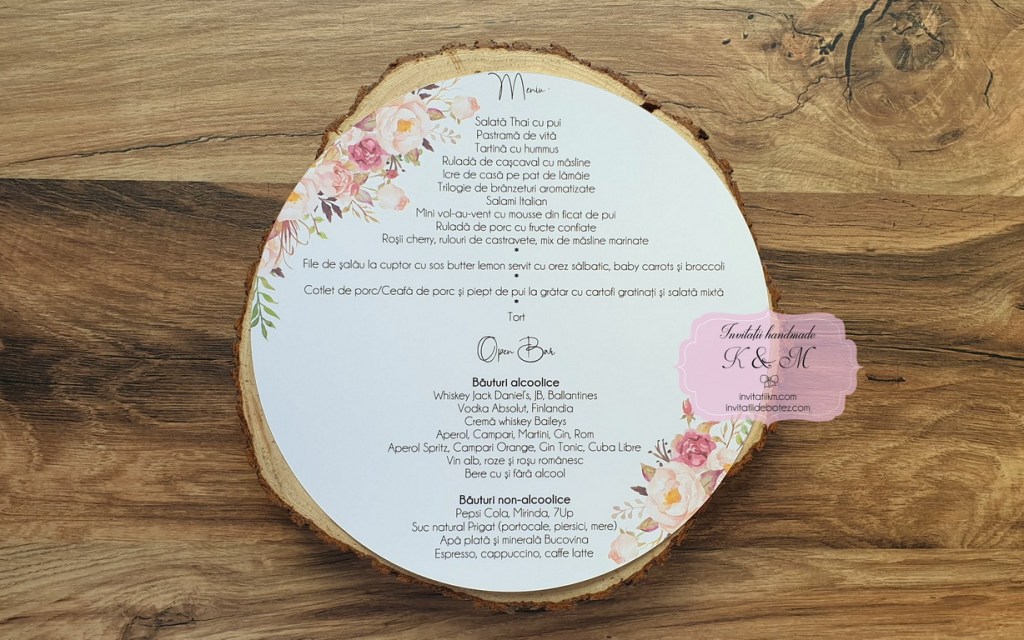 Meniu
Salată Thai cu pui
Pastramă de vită
Tartină cu hummus
Ruladă de cașcaval cu măsline
Icre de casă pe pat de lămâie
Trilogie de brânzeturi aromatizate
Salami Italian
Mini vol-au-vent cu mousse din ficat de pui
Ruladă de porc cu fructe confiate
Roșii cherry, rulouri de castravete, mix de măsline marinate
*
File de șalău la cuptor cu sos butter lemon servit cu orez sălbatic, baby carrots și broccoli
*
Cotlet de porc/Ceafă de porc și piept de pui la grătar cu cartofi gratinați și salată mixtă
*
Tort
Open Bar
Băuturi alcoolice
Whiskey Jack Daniel's, JB, Ballantines
Vodka Absolut, Finlandia
Cremă whiskey Baileys
Aperol, Campari, Martini, Gin, Rom
Aperol Spritz, Campari Orange, Gin Tonic, Cuba Libre
Vin alb, roze și roșu românesc
Bere cu și fără alcool
Băuturi non-alcoolice
Pepsi Cola, Mirinda, 7Up
Suc natural Prigat (portocale, piersici, mere)
Apă plată și minerală Bucovina
Espresso, cappuccino, caffe latte
Invitații handmade
K & M
invitatiikm.com
invitatiidebotez.com